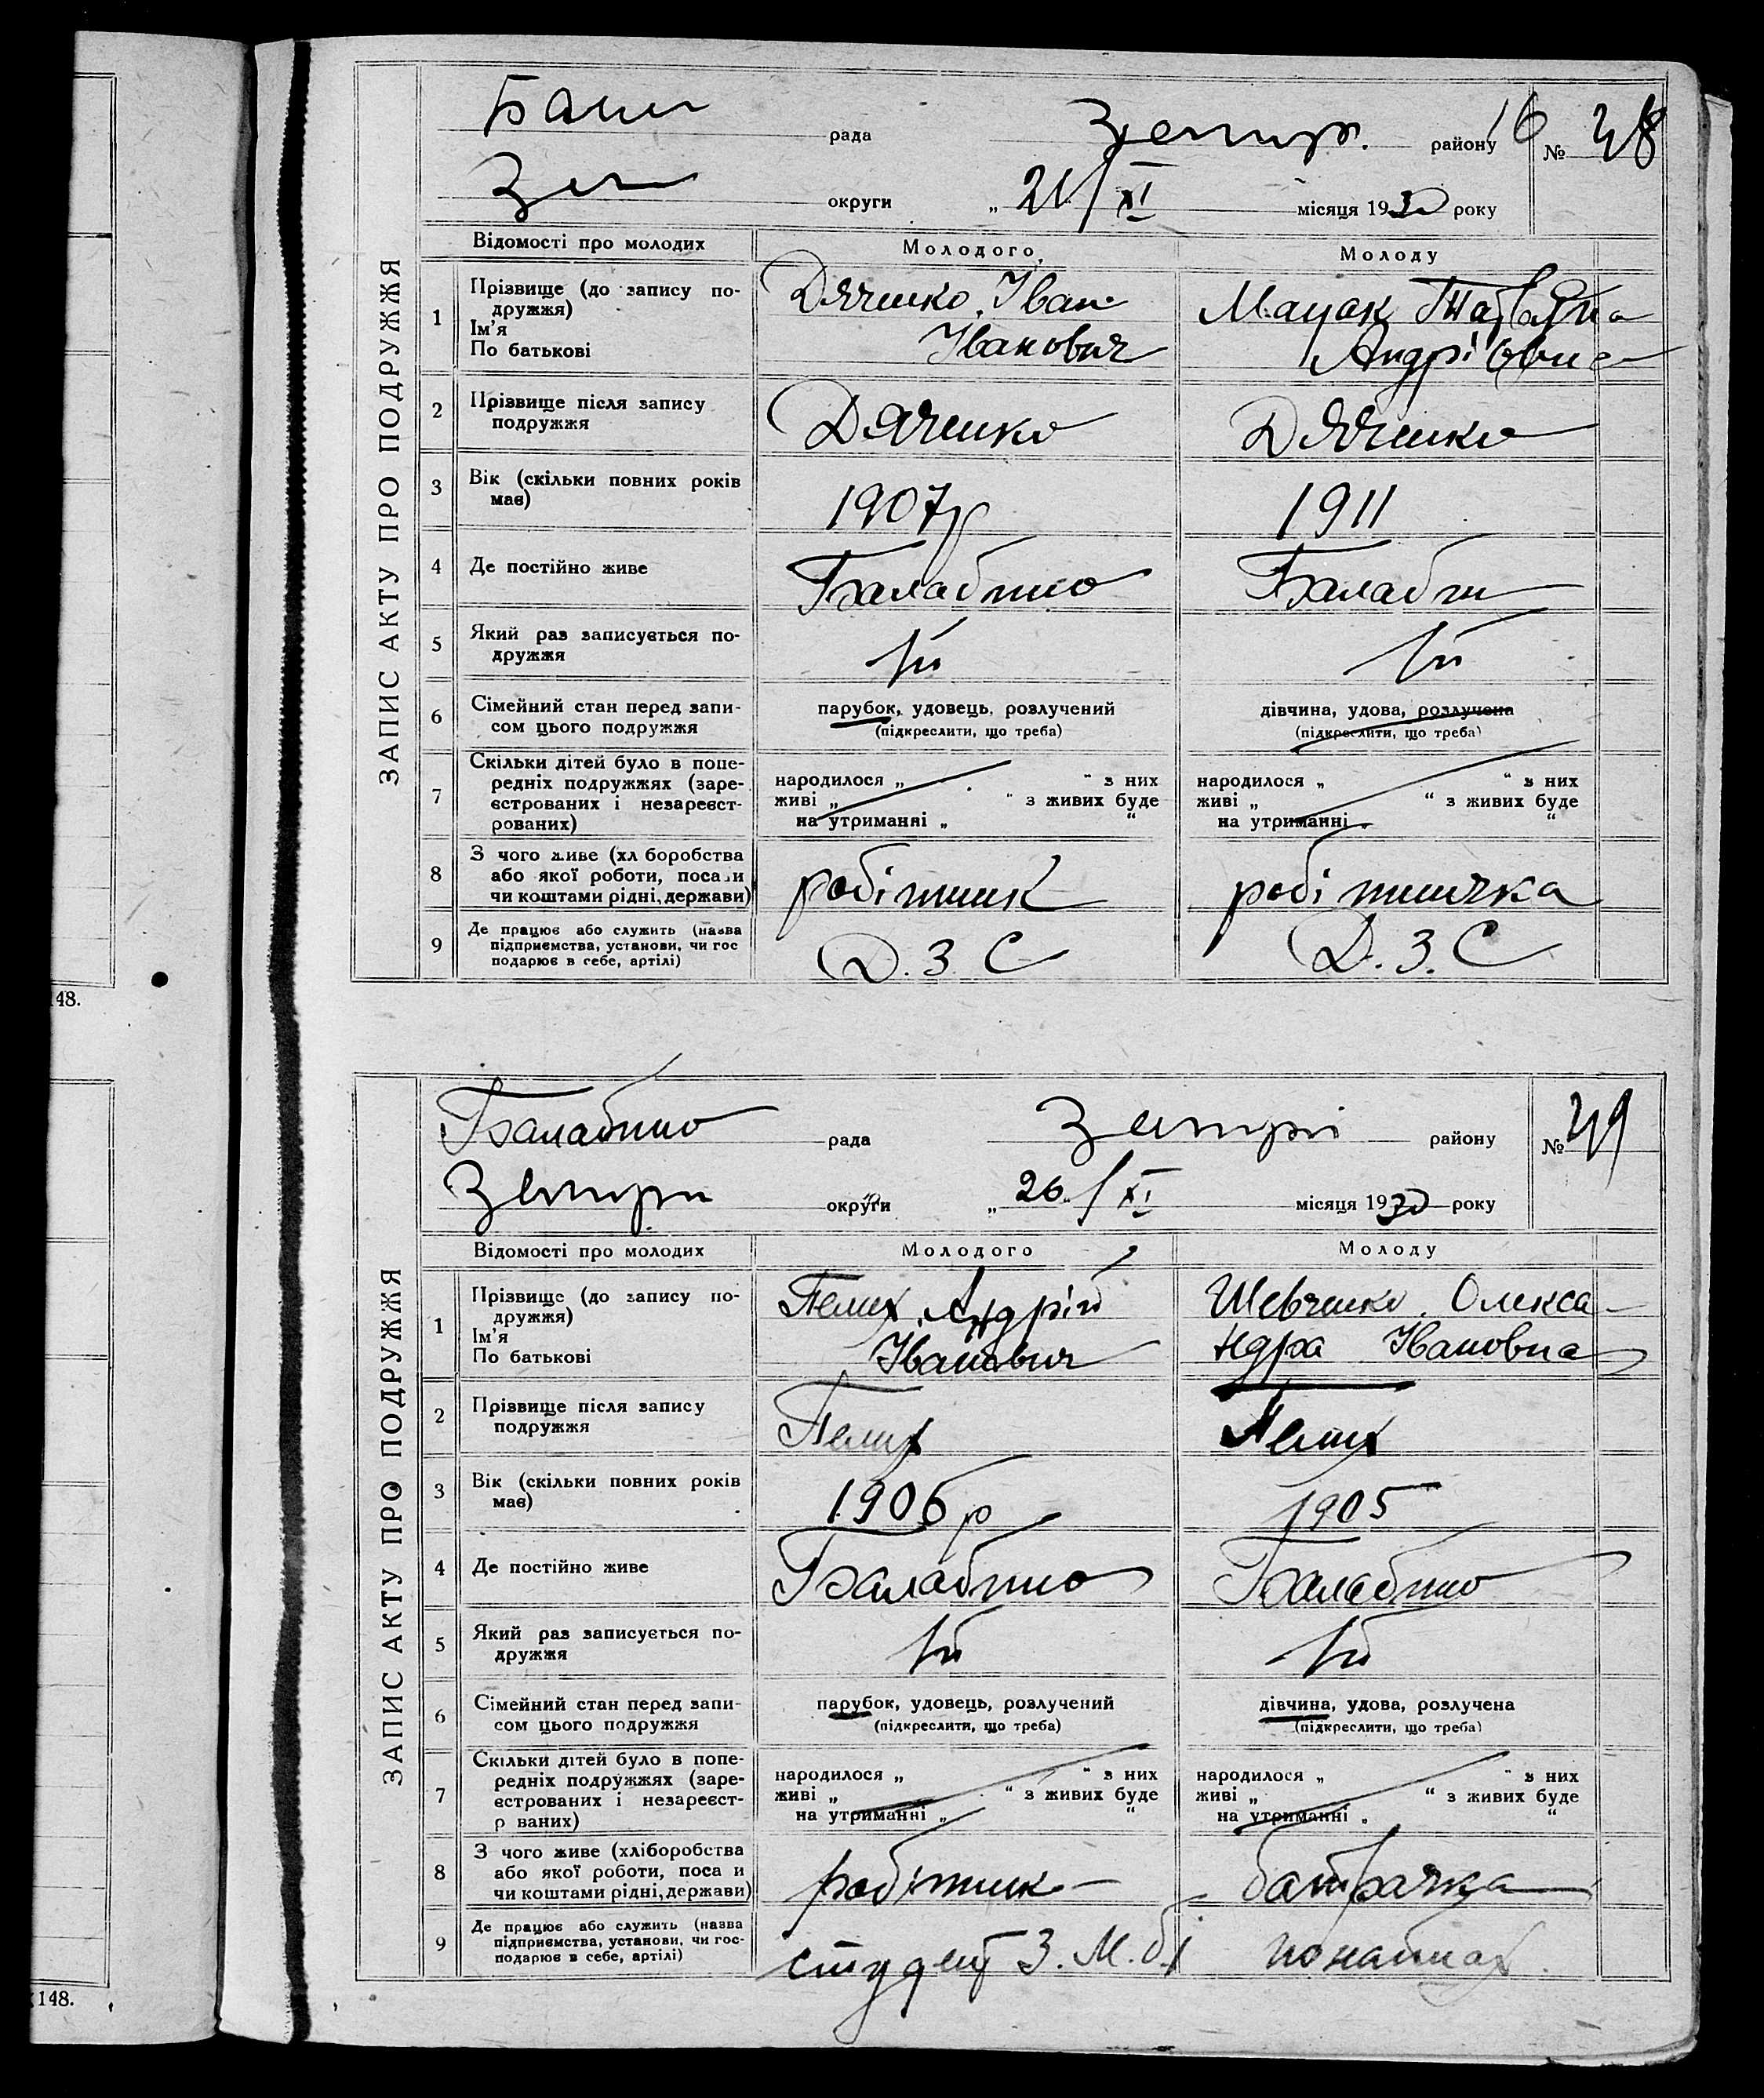 рада району 16 № 48
округи „ 21/XI місяця 1930 року
ЗАПИС АКТУ ПРО ПОДРУЖЖЯ
Відомості про молодих Молодого Молоду
1 Прізвище (до запису по-
дружжя)
Ім'я
По батькові
Дяченко Іван
Іванович
Мацак Татьяна
Андріевна
2 Прізвище після запису
подружжя
Дяченко Дяченко
3 Вік (скільки повних років
має)
1907р 1911
4 Де постійно живе Балабино Балабин
5 Який раз записується по-
дружжя
1й 1й
6 Сімейний стан перед запи-
сом цього подружжя
парубок, удовець, розлучений
(підкреслити, що треба)
дівчина, удова, розлучена
(підкреслити, що треба)
7 Скільки дітей було в попе-
редніх подружжях (заре-
єстрованих і незареєст-
рованих)
народилося „ “ з них
живі „ “ з живих буде
на утриманні „ “
народилося „ “ з них
живі „ “ з живих буде
на утриманні „ “
8 З чого живе (хл боробства
або якої роботи, посади
чи коштами рідні, держави)
робітник робітничка
9 Де працює або служить (назва
підприємства, установи, чи гос
подарює в себе, артілі)
Д.З.С Д.З.С
148.
Балабино рада району № 49
округи „ 26/XI місяця 1930 року
ЗАПИС АКТУ ПРО ПОДРУЖЖЯ
Відомості про молодих Молодого Молоду
1 Прізвище (до запису по-
дружжя)
Ім'я
По батькові
Пелих Андрій
Іванович
Шевченко Олекса-
ндра Івановна
2 Прізвище після запису
подружжя
Пелих Пелих
3 Вік (скільки повних років
має)
1906р 1905
4 Де постійно живе Балабино Балабино
5 Який раз записується по-
дружжя
1й 1й
6 Сімейний стан перед запи-
сом цього подружжя
парубок, удовець, розлучений
(підкреслити, що треба)
дівчина, удова, розлучена
(підкреслити, що треба)
7 Скільки дітей було в попе-
редніх подружжях (заре-
єстрованих і незареєст-
р ваних)
народилося „ “ з них
живі „ “ з живих буде
на утриманні „ “
народилося „ “ з них
живі „ “ з живих буде
на утриманні „ “
8 З чого живе (хліборобства
або якої роботи, поса и
чи коштами рідні, держави)
робітник батрачка
9 Де працює або служить (назва
підприємства, установи, чи гос-
подарює в себе, артілі)
студент З.М. по наймах
148.